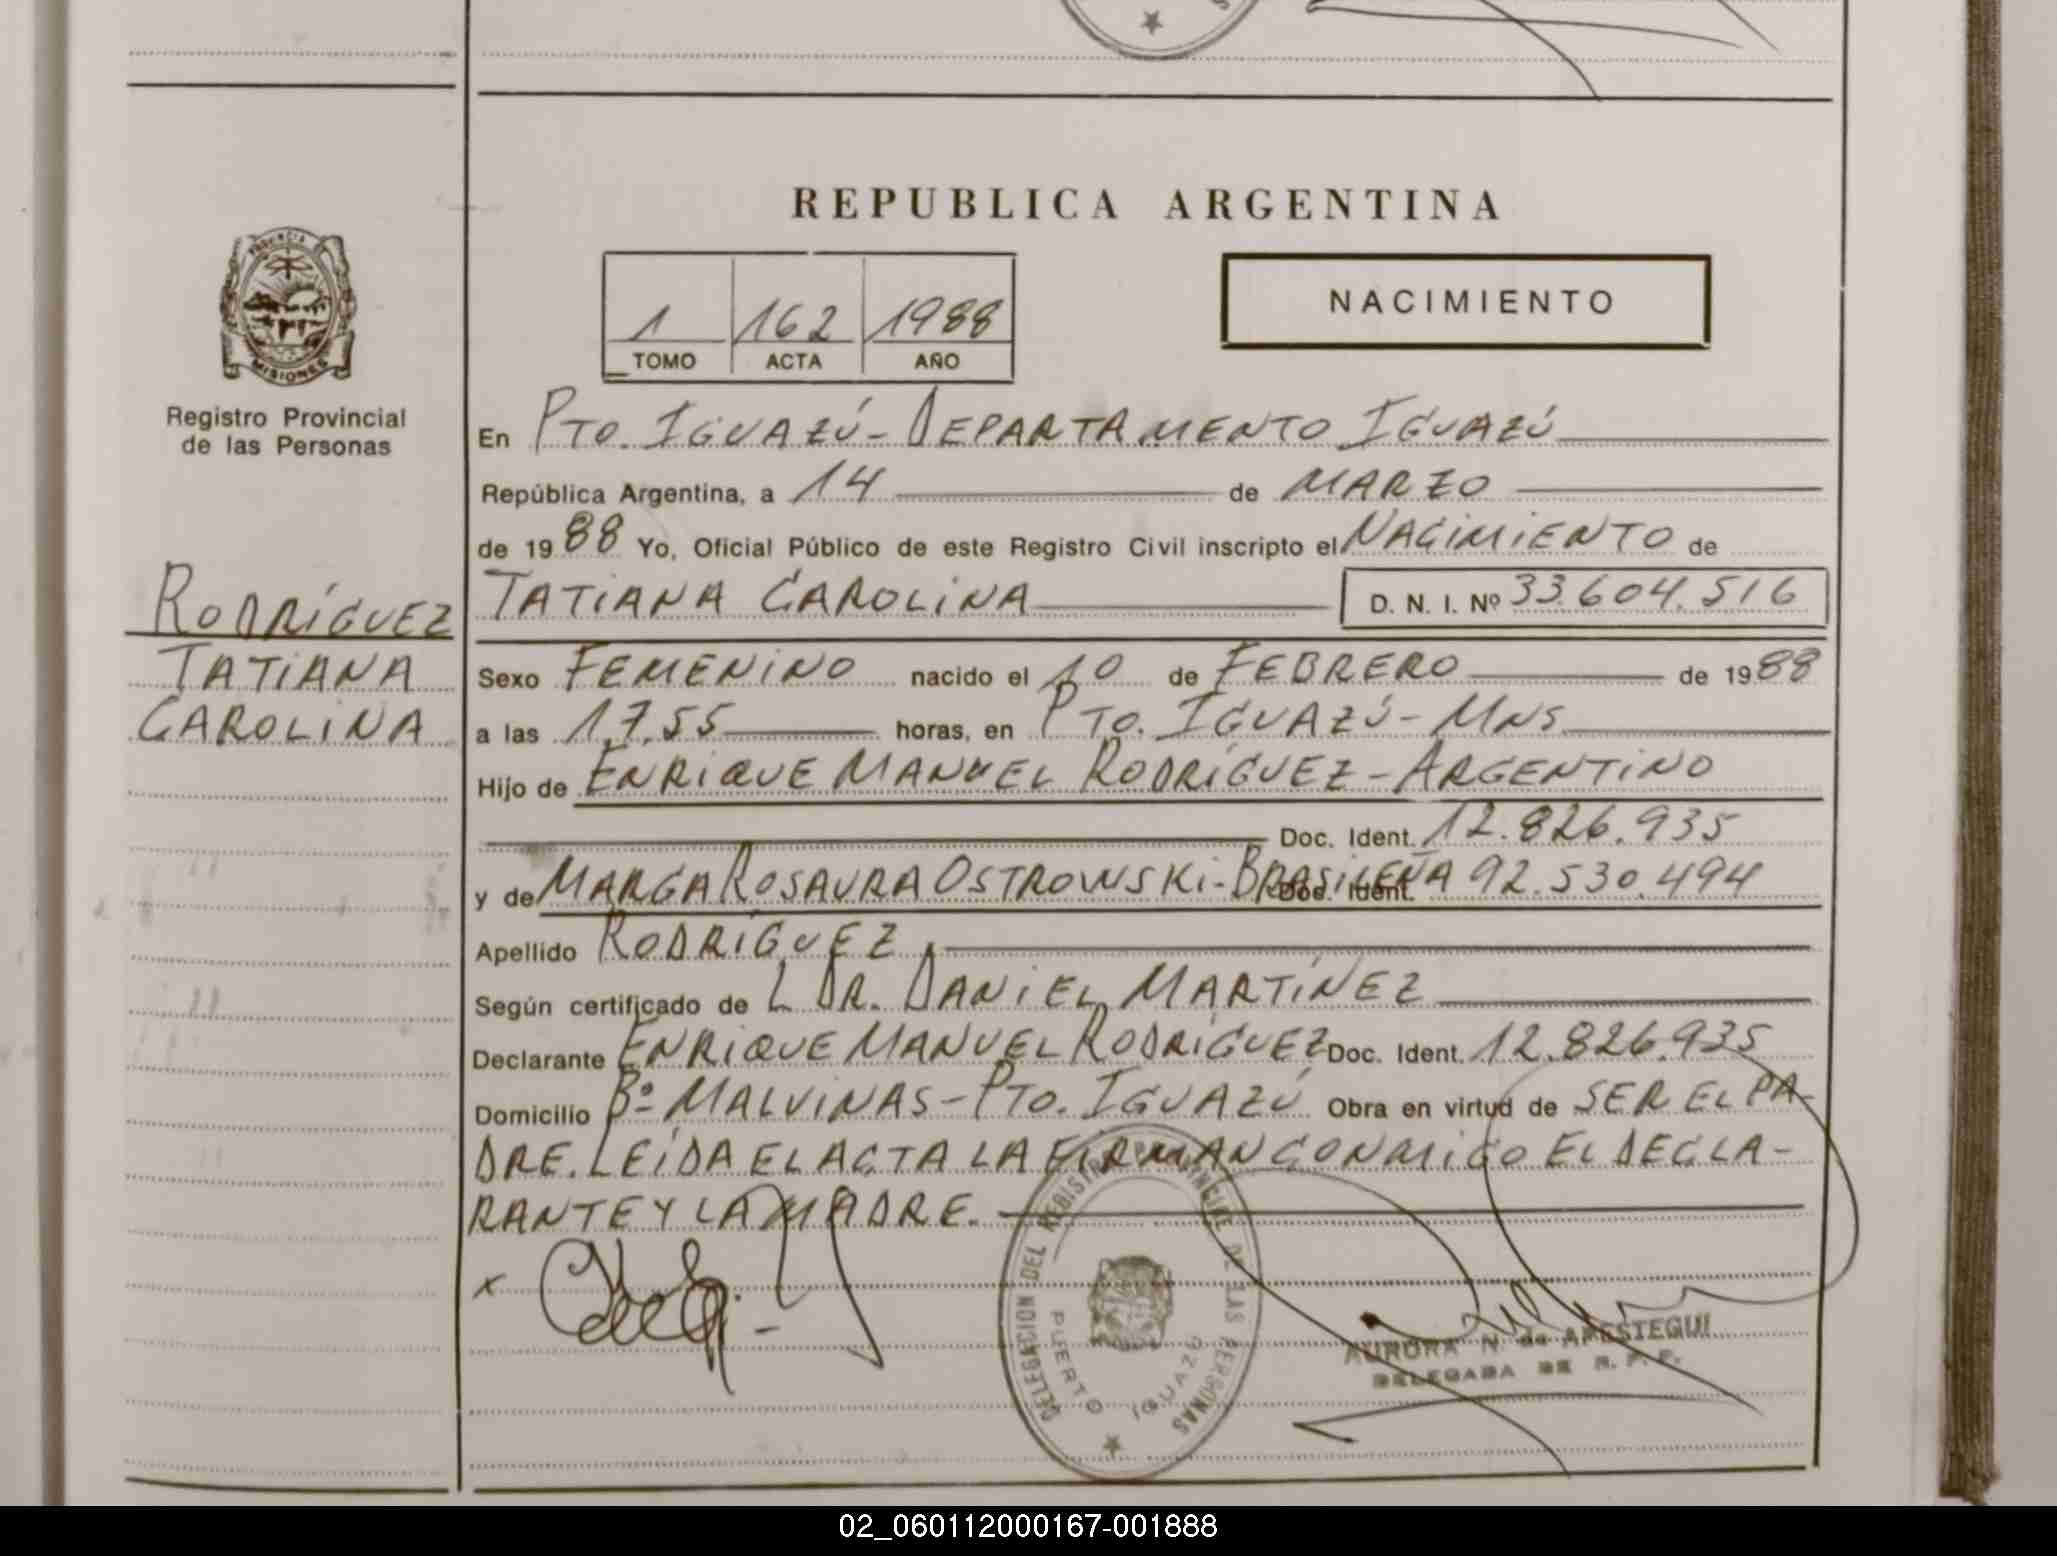 REPUBLICA ARGENTINA
1 162 1988
TOMO ACTA AÑO
NACIMIENTO
PROVINCIA DE
MISIONES
Registro Provincial
de las Personas
RODRÍGUEZ
TATIANA
CAROLINA
En PTO. IGUAZÚ - DEPARTAMENTO IGUAZÚ
República Argentina, a 14 de MARZO
de 1988 Yo, Oficial Público de este Registro Civil inscripto el NACIMIENTO de
TATIANA CAROLINA D. N. I. Nº 33.604.516
Sexo FEMENINO nacido el 10 de FEBRERO de 1988
a las 17.55 horas, en PTO. IGUAZÚ - MNS
Hijo de ENRIQUE MANUEL RODRÍGUEZ - ARGENTINO
Doc. Ident. 12.826.935
y de MARGA ROSAURA OSTROWSKI - BRASILEÑA Doc. Ident. 92.530.494
Apellido RODRÍGUEZ
Según certificado de L DR. DANIEL MARTÍNEZ
Declarante ENRIQUE MANUEL RODRÍGUEZ Doc. Ident. 12.826.935
Domicilio Bº MALVINAS - PTO. IGUAZÚ Obra en virtud de SER EL PA-
DRE. LEÍDA EL ACTA LA FIRMAN CONMIGO EL DECLA-
RANTE Y LA MADRE.
x
DELEGACION DEL REGISTRO PROVINCIAL DE LAS PERSONAS
PUERTO IGUAZU
AURORA N. de APESTEGUI
DELEGADA DE R. P. P.
02_060112000167-001888